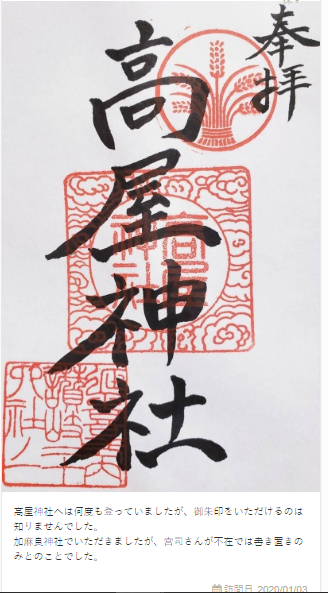 奉拝
高屋神社
高屋神社
高屋神社へは何度も登っていましたが、御朱印をいただけるのは
知りませんでした。
加麻良神社でいただきましたが、宮司さんが不在では書き置きの
みとのことでした。
訪問日 2020/01/03